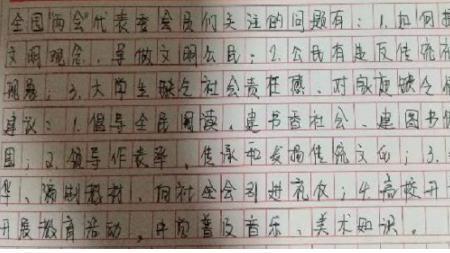 全国"两会"代表委会员们关注的问题有：1.如何提
文明观念，争做文明公民；2.公民有违反传统
现象；3.大学生缺乏社会责任感，对家庭缺乏
建议：1.倡导全民阅读，建书香社会、建图书
国；2.领导作表率，传承和发扬传统文化；3.
华、编制教材，向社会引进礼仪；4.高校开
开展教育活动，中页普及音乐、美术知识。